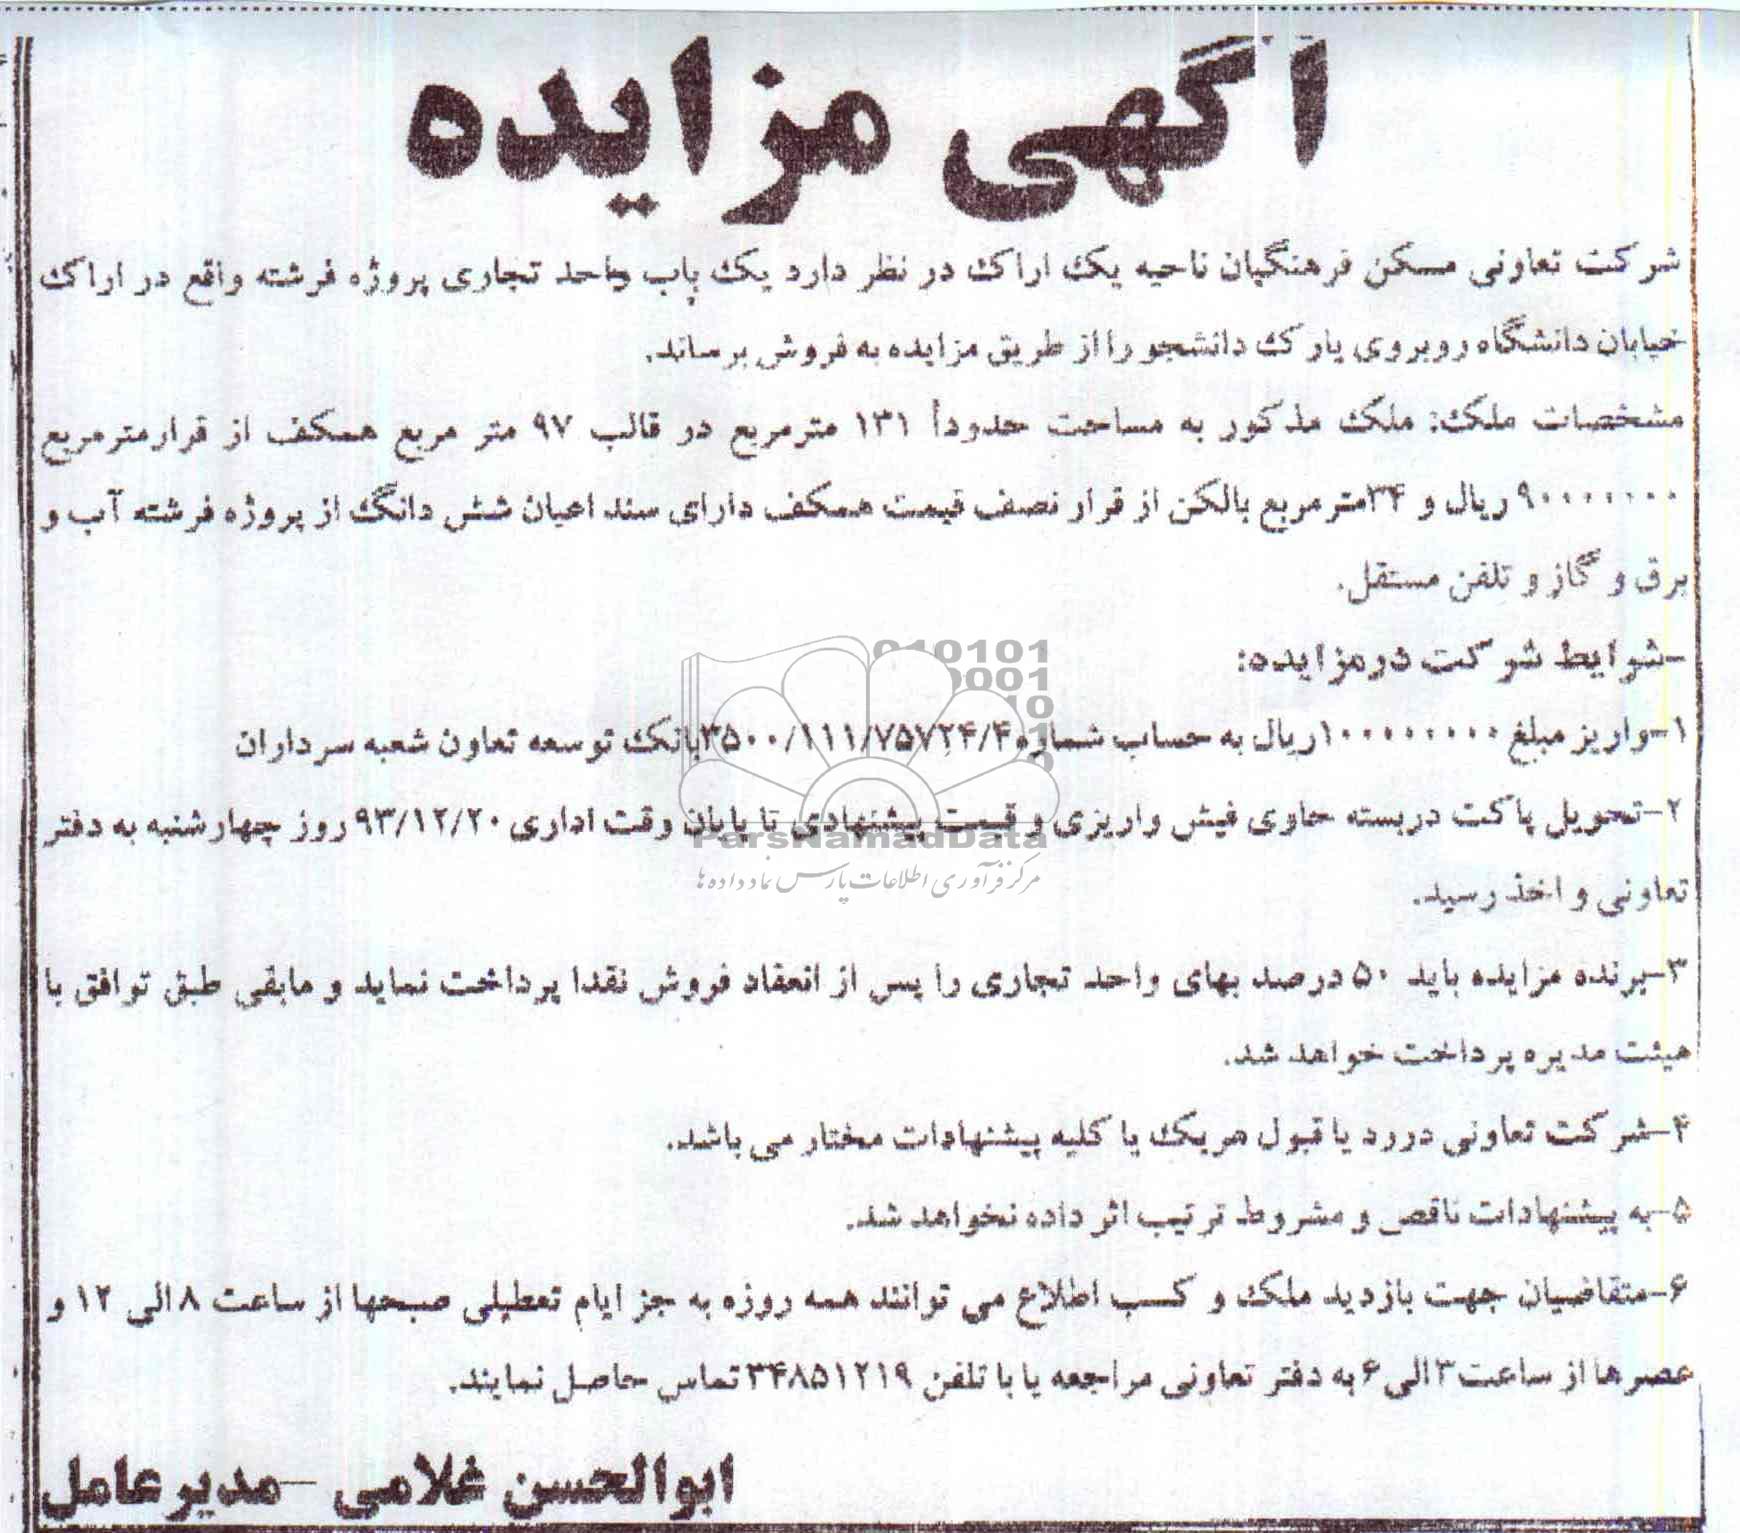 آگهی مزایده
شرکت تعاونی مسکن فرهنگیان ناحیه یک اراک در نظر دارد یک باب واحد تجاری پروژه فرشته واقع در اراک
خیابان دانشگاه روبروی پارک دانشجو را از طریق مزایده به فروش برساند.
مشخصات ملک: ملک مذکور به مساحت حدوداً ۱۳۱ مترمربع در قالب ۹۷ متر مربع همکف از قرارمترمربع
۹۰۰۰۰۰۰۰ ریال و ۳۴مترمربع بالکن از قرار نصف قیمت همکف دارای سند اعیان شش دانگ از پروژه فرشته آب و
برق و گاز و تلفن مستقل.
-شرایط شرکت درمزایده:
۱-واریز مبلغ ۱۰۰۰۰۰۰۰۰۰ریال به حساب شماره۳۵۰۰/۱۱۱/۷۵۷۲۴/۴بانک توسعه تعاون شعبه سرداران
۲-تحویل پاکت دربسته حاوی فیش واریزی و قیمت پیشنهادی تا پایان وقت اداری ۹۳/۱۲/۲۰ روز چهارشنبه به دفتر
تعاونی و اخذ رسید.
۳-برنده مزایده باید ۵۰ درصد بهای واحد تجاری را پس از انعقاد فروش نقدا پرداخت نماید و مابقی طبق توافق با
هیئت مدیره پرداخت خواهد شد.
۴-شرکت تعاونی دررد یا قبول هریک یا کلیه پیشنهادات مختار می باشد.
۵-به پیشنهادات ناقص و مشروط ترتیب اثر داده نخواهد شد.
۶-متقاضیان جهت بازدید ملک و کسب اطلاع می توانند همه روزه به جز ایام تعطیلی صبحها از ساعت ۸ الی ۱۲ و
عصرها از ساعت۳الی۶به دفتر تعاونی مراجعه یا با تلفن ۳۴۸۵۱۲۱۹تماس حاصل نمایند.
ابوالحسن غلامی -مدیرعامل
010101
0001
10
ParsNamadData
مرکز فرآوری اطلاعات پارس نماد داده ها